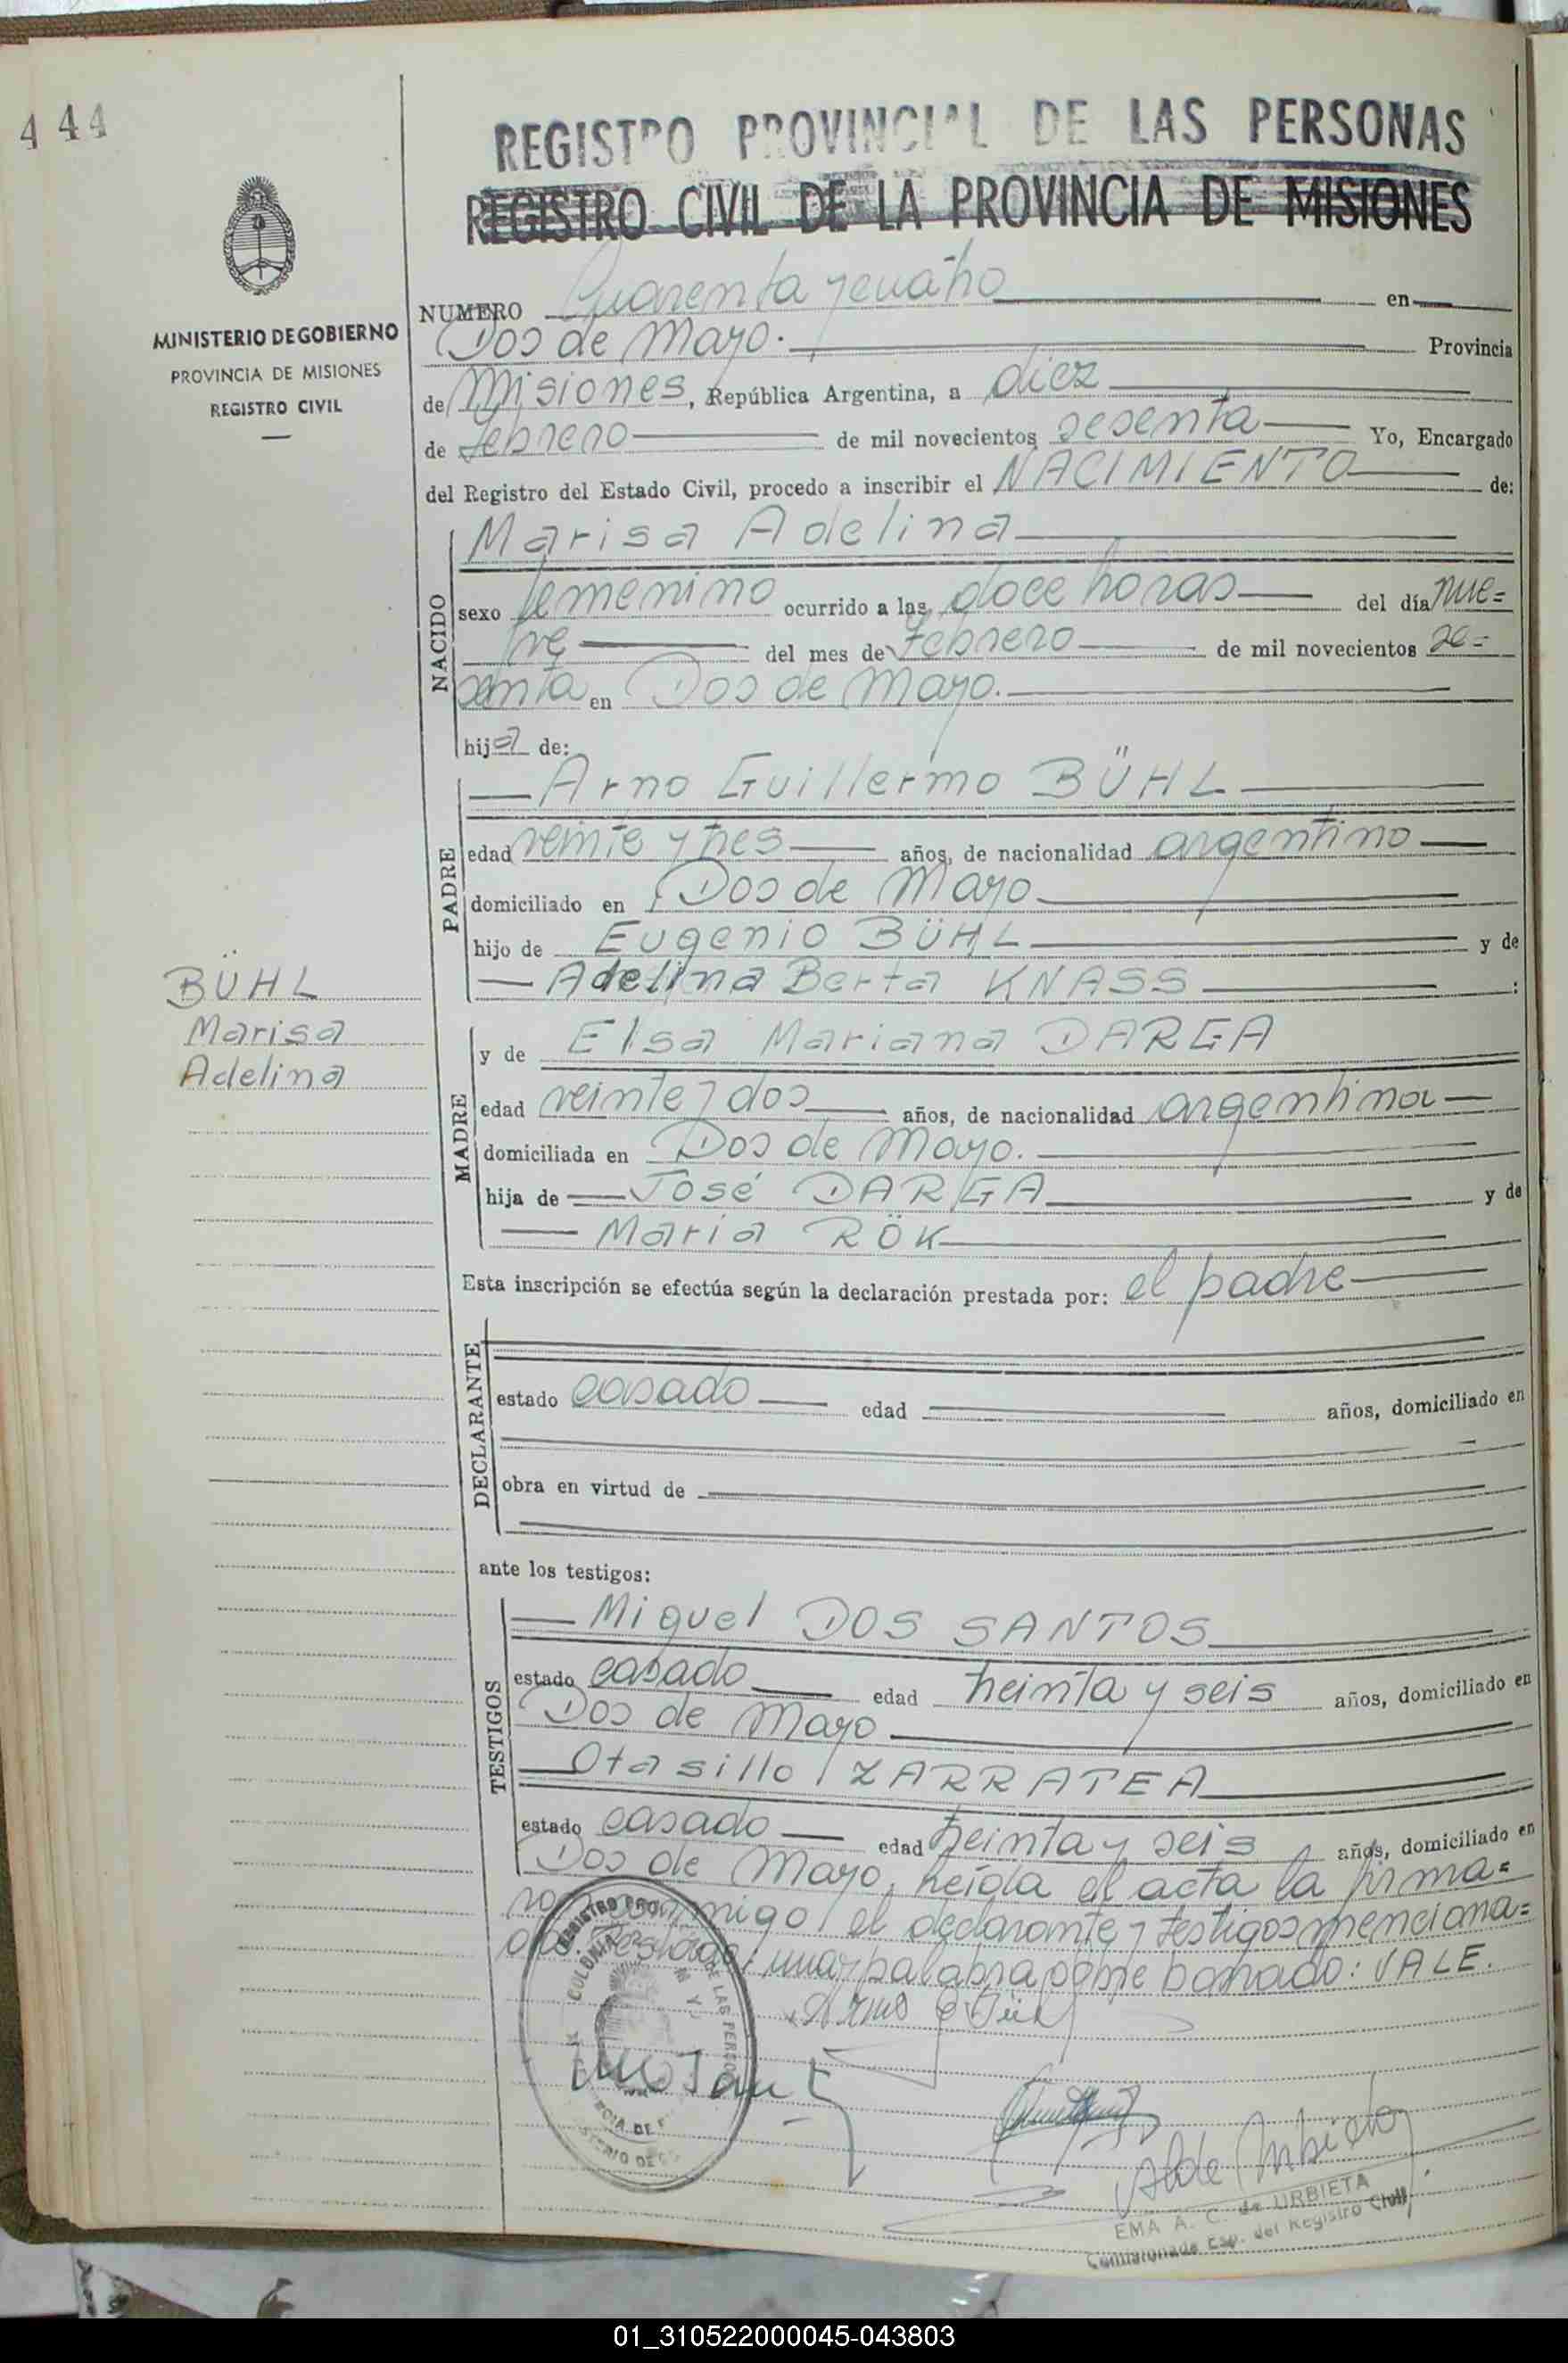 444
REGISTRO PROVINCIAL DE LAS PERSONAS
REGISTRO CIVIL DE LA PROVINCIA DE MISIONES
MINISTERIO DE GOBIERNO
PROVINCIA DE MISIONES
REGISTRO CIVIL
NUMERO Cuarenta y cuatro en
Dos de Mayo. Provincia
de Misiones, República Argentina, a diez
de febrero de mil novecientos sesenta Yo, Encargado
del Registro del Estado Civil, procedo a inscribir el NACIMIENTO de:
NACIDO
Marisa Adelina
sexo femenino ocurrido a las doce horas del día nue=
ve del mes de Febrero de mil novecientos se=
senta en Dos de Mayo.
hija de:
PADRE
Arno Guillermo BÜHL
edad veinte y tres años, de nacionalidad argentino
domiciliado en Dos de Mayo
hijo de Eugenio BÜHL y de
Adelina Berta KNASS :
BÜHL
Marisa
Adelina
MADRE
y de Elsa Mariana DARGA
edad veinte y dos años, de nacionalidad argentina
domiciliada en Dos de Mayo.
hija de José DARGA y de
Maria RÖK
Esta inscripción se efectúa según la declaración prestada por: el padre
DECLARANTE
estado casado edad años, domiciliado en
obra en virtud de
ante los testigos:
TESTIGOS
Miguel DOS SANTOS
estado casado edad treinta y seis años, domiciliado en
Dos de Mayo
Otasillo ZARRATEA
estado casado edad treinta y seis años, domiciliado en
Dos de Mayo, leída el acta la firma=
ron conmigo el declarante y testigos menciona=
dos. una palabra sobre borrado: VALE.
EMA A. C. de URBIETA
Comisionada Esp. del Registro Civil
01_310522000045-043803